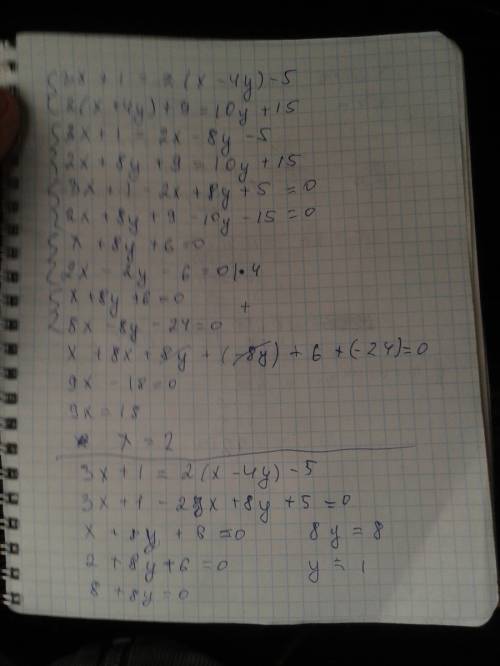 3x + 1 = 2(x - 4y) - 5
2(x + 4y) + 9 = 10y + 15
3x + 1 = 2x - 8y - 5
2x + 8y + 9 = 10y + 15
3x + 1 - 2x + 8y + 5 = 0
2x + 8y + 9 - 10y - 15 = 0
x + 8y + 6 = 0
2x - 2y - 6 = 0 | • 4
x + 8y + 6 = 0
+
8x - 8y - 24 = 0
x + 8x + 8y + (-8y) + 6 + (-24) = 0
9x - 18 = 0
9x = 18
x = 2
3x + 1 = 2(x - 4y) - 5
3x + 1 - 2x + 8y + 5 = 0
x + 8y + 6 = 0 8y = 8
2 + 8y + 6 = 0 y = 1
8 + 8y = 0